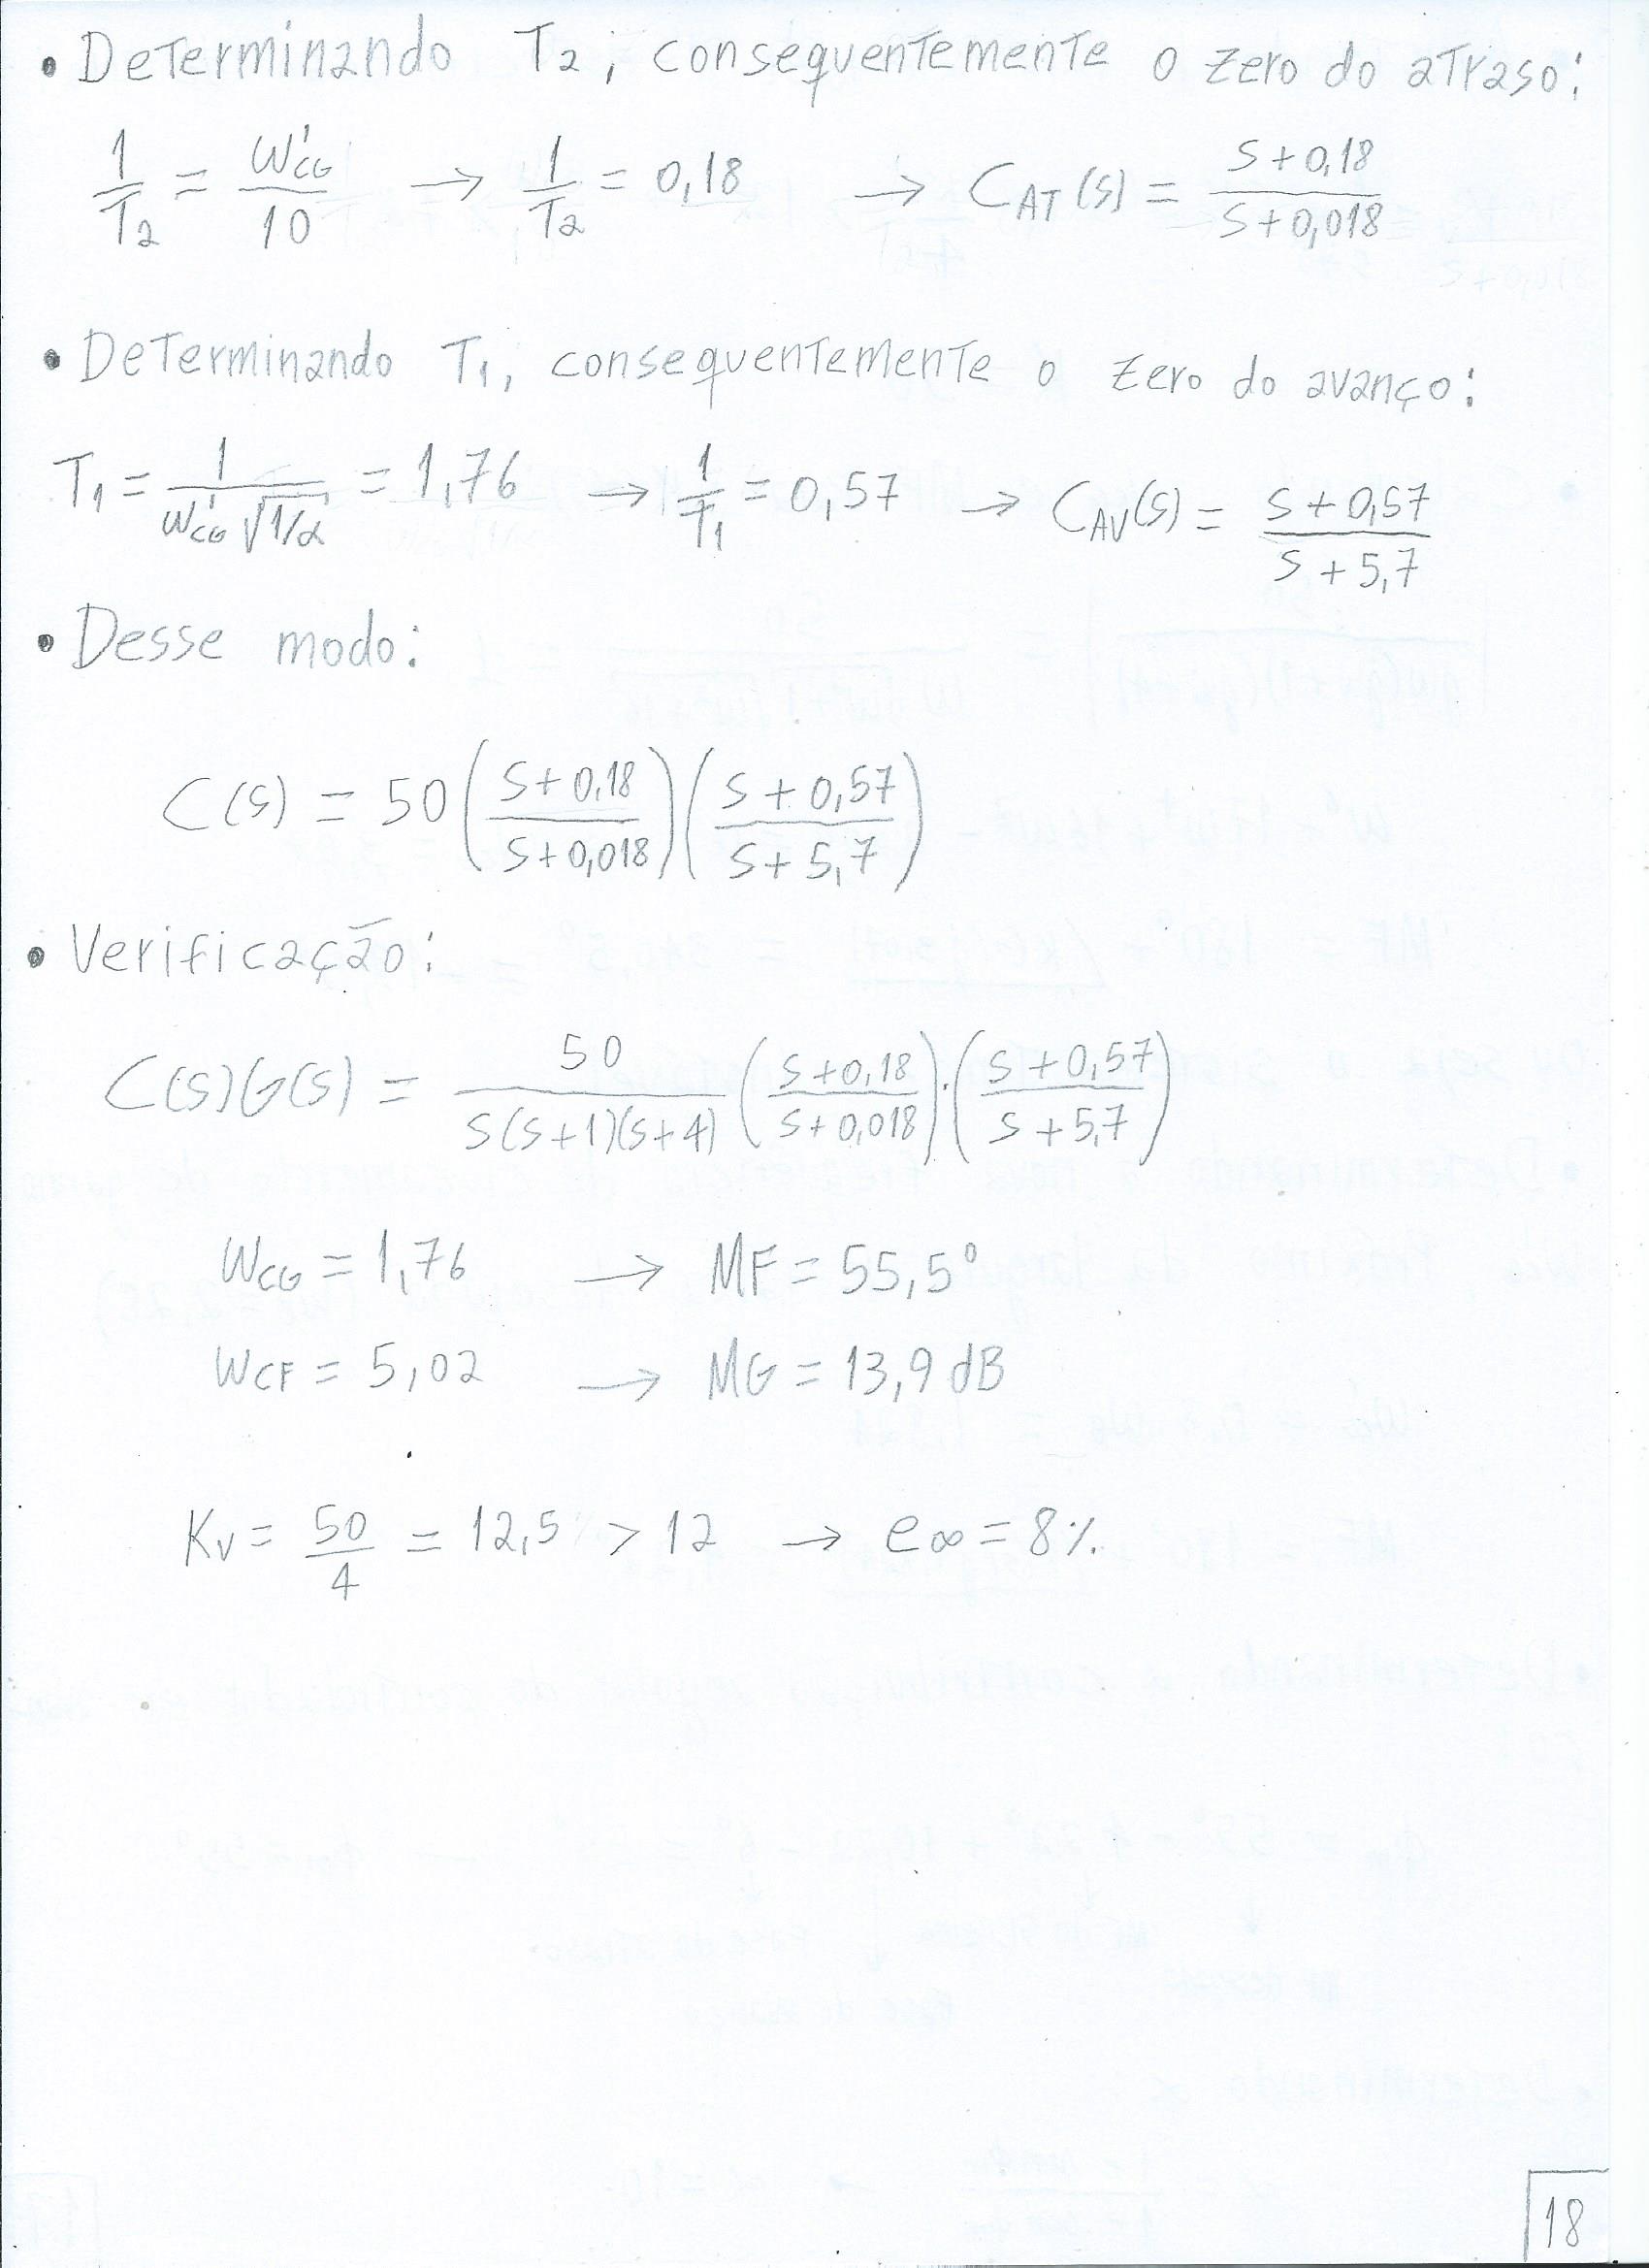 • Determinando T2, consequentemente o zero do atraso:
1/T2 = W'CG/10 → 1/T2 = 0,18 → CAT(s) = (s+0,18)/(s+0,018)
• Determinando T1, consequentemente o zero do avanço:
T1 = 1/(W'CG √(1/α)) = 1,76 → 1/T1 = 0,57 → CAV(s) = (s+0,57)/(s+5,7)
• Desse modo:
C(s) = 50 ((s+0,18)/(s+0,018)) ((s+0,57)/(s+5,7))
• Verificação:
C(s)G(s) = 50/(s(s+1)(s+4)) ((s+0,18)/(s+0,018)) · ((s+0,57)/(s+5,7))
WCG = 1,76 → MF = 55,5°
WCF = 5,02 → MG = 13,9 dB
Kv = 50/4 = 12,5 > 12 → e∞ = 8%
18